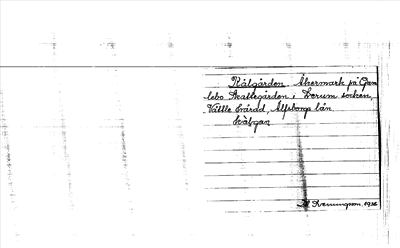 Kålgården Åkermark på Gam
lebo Skattegården i Lerum socken,
Vättle härad, Älfsborgs län
Svenningson, 1926